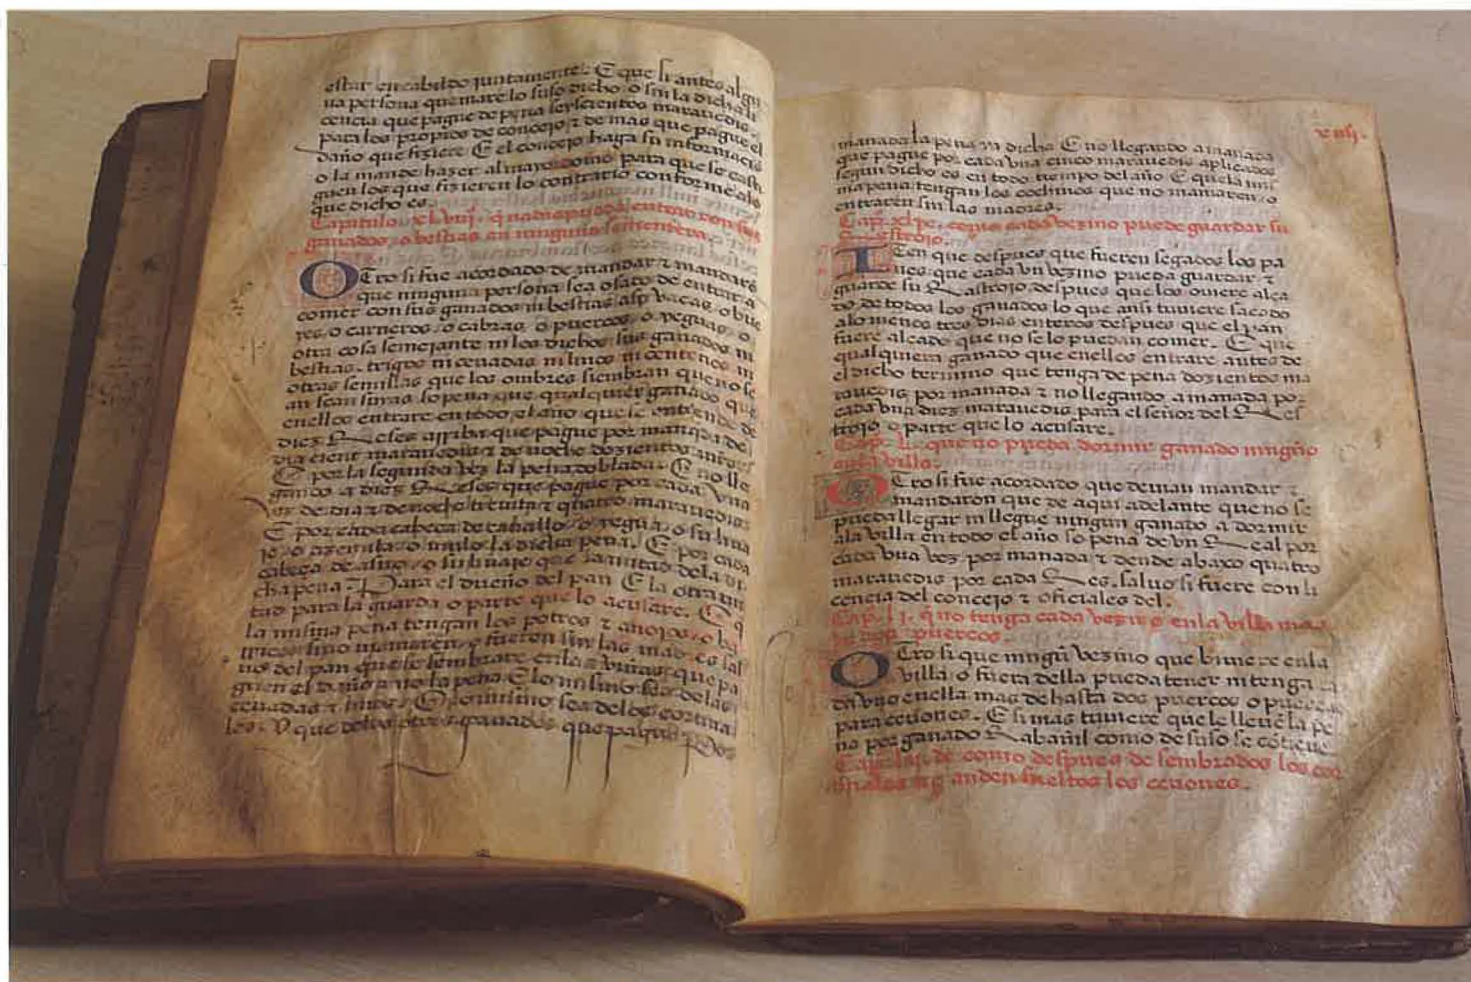 estar en cabildo juntamente. E que si antes algu
na persona quemare lo suso dicho, o sin la dicha li
cencia que pague de pena seyscientos marauedis.
para los propios de concejo z de mas que pague el
daño que fiziere. E el concejo haga su informació
o la mande hazer al mayordomo para que se casti
guen los que fizieren lo contrario conforme alo
que dicho es.
Capitulo. xl.viij. q nadie pueda entrar con sus
ganados, o bestias en ninguna sementera.
OTro si fue acordado de mandar z mandaró
que ninguna persona sea osado de entrar a
comer con sus ganados ni bestias asy vacas, o bue
yes, o carneros, o cabras, o puercos, o yeguas, o
otra cosa semejante ni los dichos sus ganados ni
bestias. trigos ni ceuadas ni linos ni centenos ni
otras semillas que los ombres siembran que no se
an seran suyas so pena que qualquier ganado que
enellos entrare en todo el año que se entiende de
diez Reses arriba que pague por manada de
dia cient marauedis z de noche dozientos
E por la segunda vez la pena doblada. E no lle
gando a diez Reses que pague por cada vna
de dia z de noche treynta z quatro marauedis
E por cada cabeça de cauallo, o yegua, o su lina
je, o azemila, o mulo la dicha pena. E por cada
cabeça de asno, o su linaje que la mitad dela di
cha pena. Para el dueño del pan E la otra mi
tad para la guarda o parte que lo acusare. E q
la misma pena tengan los potros z añojos, o bu
rricos sino mamaren, o fueron sin las madres sal
uo del pan que se sembrare enlas viñas que pa
guen el daño z no la pena. E lo mismo sea delas
ceuadas z linos. E lo mismo sea delos cortina
les. Y que delos otros ganados que paque por
xviij.
manada la pena ya dicha E no llegando a manada
que pague por cada vna cinco marauedis aplicados
segun dicho es en todo tiempo del año E que la mis
ma pena tengan los cochinos que no mamaren, o
entraren sin las madres.
Cap. xl.ix. como cada vezino puede guardar su
Rastrojo.
ITen que despues que fueren segados los pa
nes que cada vn vezino pueda guardar z
guarde su Rastrojo, despues que los ouiere alça
do de todos los ganados lo que ansi tuuiere sacado
alo menos tres dias enteros despues que el pan
fuere alçado que no se lo puedan comer. E que
qualquiera ganado que enellos entrare antes de
el dicho termino que tenga de pena dozientos ma
rauedis por manada z no llegando a manada por
cada vna diez marauedis para el señor del Res
trojo o parte que lo acusare.
Cap. L. que no pueda dormir ganado ningúo
enla villa.
OTro si fue acordado que deuian mandar z
mandaron que de aqui adelante que no se
pueda llegar ni llegue ningun ganado a dormir
ala villa en todo el año so pena de vn Real por
cada vna vez por manada z dende abaxo quatro
marauedis por cada Res. saluo si fuere con li
cencia del concejo z oficiales del.
Cap. lj. q no tenga cada vezino enla villa mas
de dos puercos.
OTro si que ningú vezino que biuiere enla
villa o fuera della pueda tener ni tenga
enella mas de hasta dos puercos o puercas
para ceuones. E si mas tuuiere que le lleué la pe
na por ganado Rabañil como de suso se cótiene
Cap. lij. de como despues de sembrados los cor
tinales no anden sueltos los ceuones.